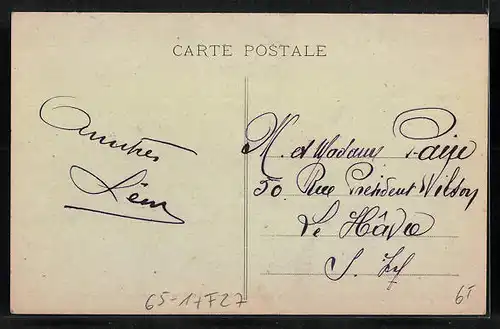 CARTE POSTALE
Amitiés
Léon
M. et Madame
50 Rue Président Wilson
Le Hâvre
S. Inf
65-1+F27
6F